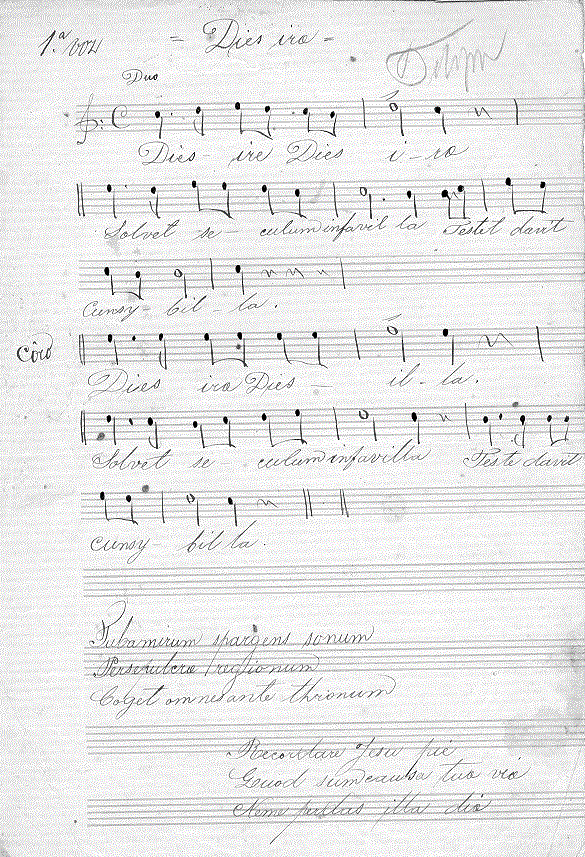 1.a voz
= Dies iro =
Duo
Dies - ire Dies i - ro
Solvet se - culum infavil la Testet davit
Cunsy - bil - la.
Côro
Dies iro Dies - il - la.
Solvet se - culum infavilla Teste davit
cunsy - bil la.
Tubamirum spargens sonum
Persepulcra regionum
Coget omnesante thronum
Recordare Jesu pie
Quod sumcausa tua vio
Neme perdas illa dio